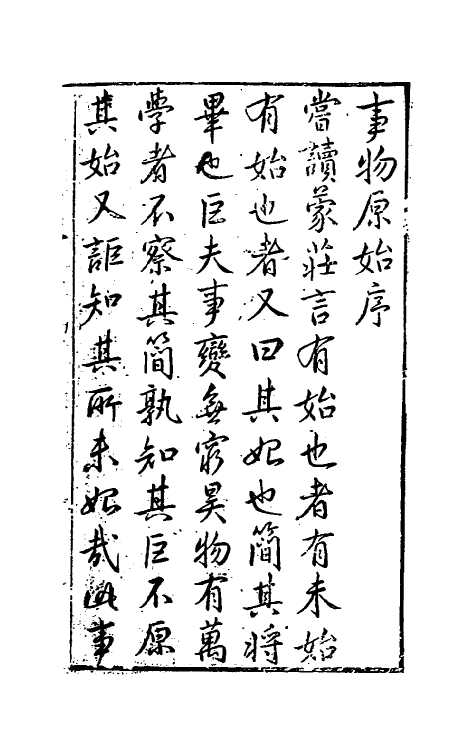 事物原始序
嘗讀蒙莊言有始也者有未始
有始也者又曰其始也簡其將
畢也巨夫事變無窮昊物有萬
學者不察其簡孰知其巨不原
其始又詎知其所未始哉此事